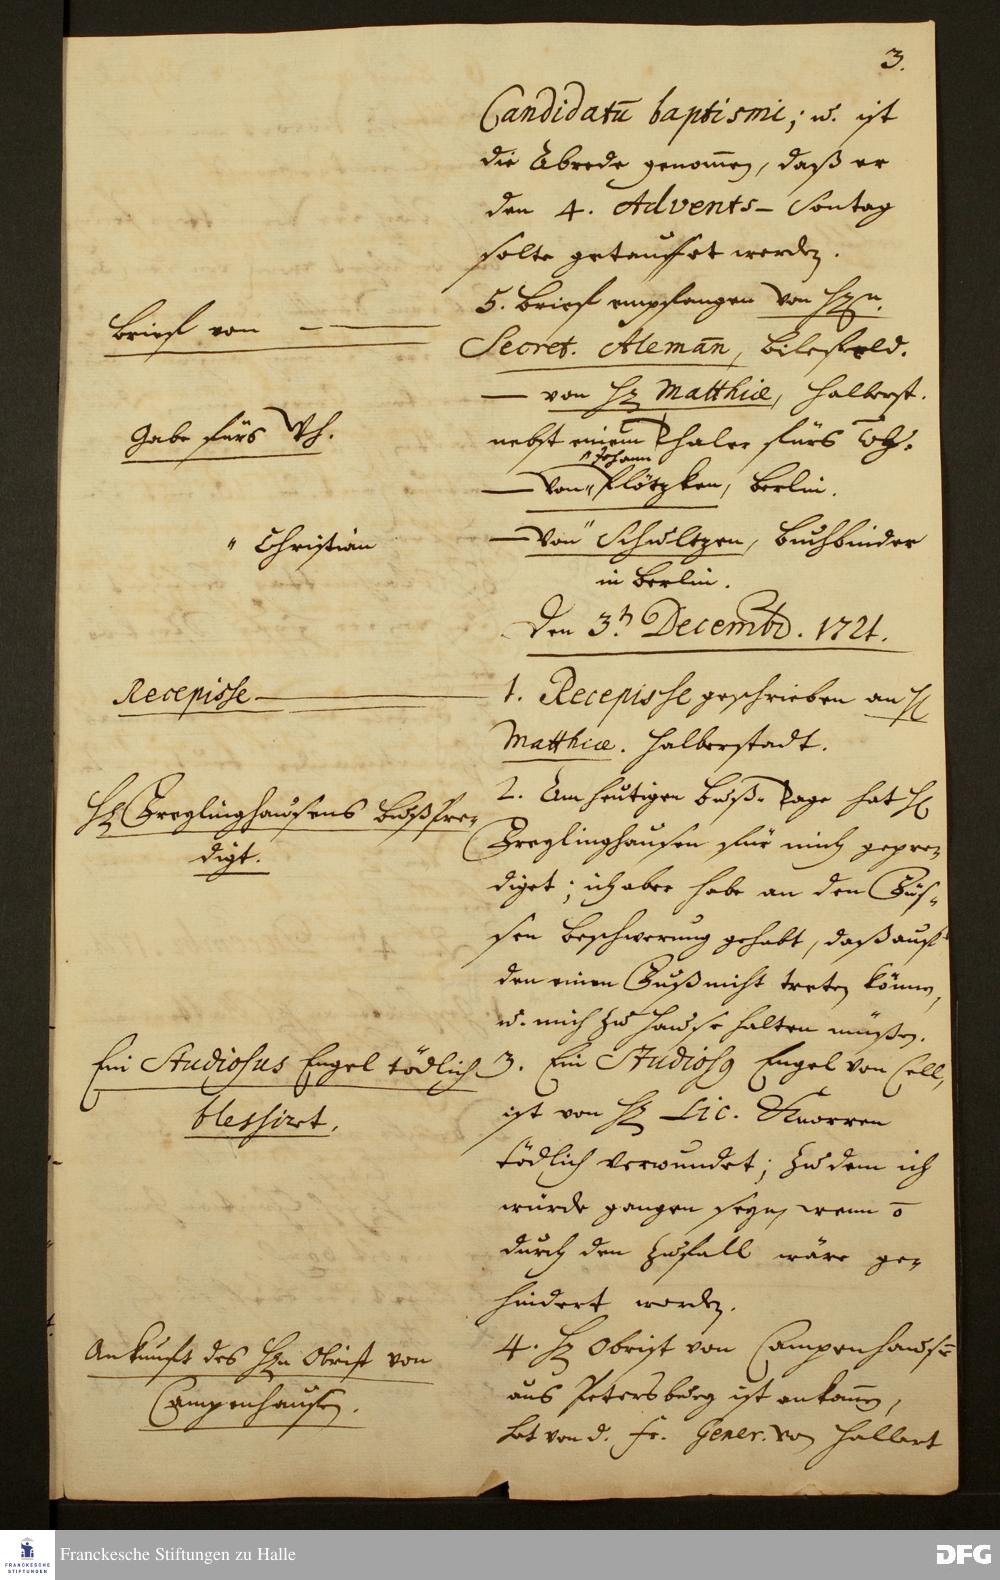 3.
Candidatū baptismi; u. ist
die Abrede genom̄en, daß er
den 4. Advents- Sontag
solte getauffet werden.
Brieff von
5. Brieff empfangen von Hrn.
Secret. Aleman̄, Bilefeld.
— von H. Matthiæ, Halberst.
Gabe fürs Wh.
nebst einem Thaler fürs Wh.
" Johann
— von " Flötzken, Berlin.
" Christian
— von " Schultzen, Buchbinder
in Berlin.
Den 3.t Decembr. 1721.
Recepisse
1. Recepisse geschrieben an H.
Matthiæ. Halberstadt.
2. Am heutigen Buß-Tage hat H.
H. Freylinghausens Bußpre-
digt.
Freylinghausen für mich gepre-
diget; ich aber habe an den Füs-
sen Beschwerung gehabt, daß auf
den einen Fuß nicht treten könn̄en,
u. mich zu Hause halten müßen.
Ein Studiosus Engel tödlich
blessirt.
3. Ein Studios9 Engel von Cell,
ist von H. Lic. Knorren
tödlich verwundet; zu dem ich
würde gangen seyn, wenn ō
durch den Zufall wäre ge-
hindert worden.
Ankunfft des Hrn Obrist von
Campenhausen.
4. H. Obrist von Campenhausē
aus Petersburg ist ankom̄en,
hat von d. Fr. Gener. von Hallart
Franckesche Stiftungen zu Halle
FRANCKESCHE
STIFTUNGEN
DFG